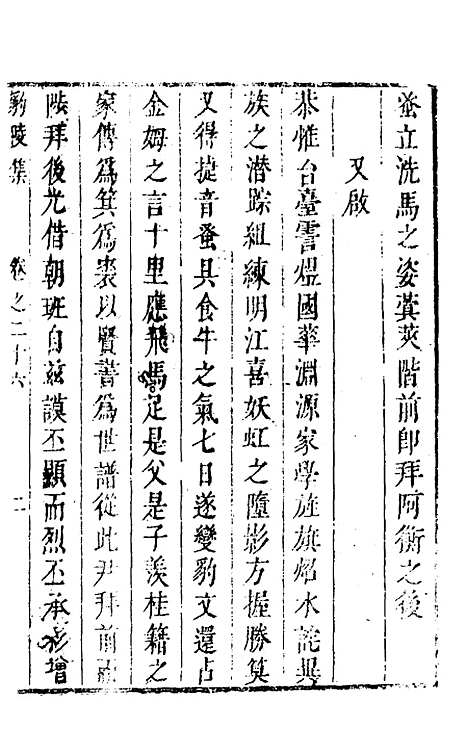 蚤立洗馬之姿蓂莢階前即拜阿衡之後
又啟
恭惟台臺霅煜國華淵源家學旌旗焰水詫異
族之潜踪組練明江喜妖虹之墮影方握勝筭
又得捷音蚤具食牛之氣七日遂變豹文還占
金姆之言十里應飛馬足是父是子羨桂籍之
家傳爲箕爲裘以賢書爲世譜從此尹拜前而
陟拜後光借朝班自兹謨丕顯而烈丕承彩增
豹陵集
卷之二十六
二